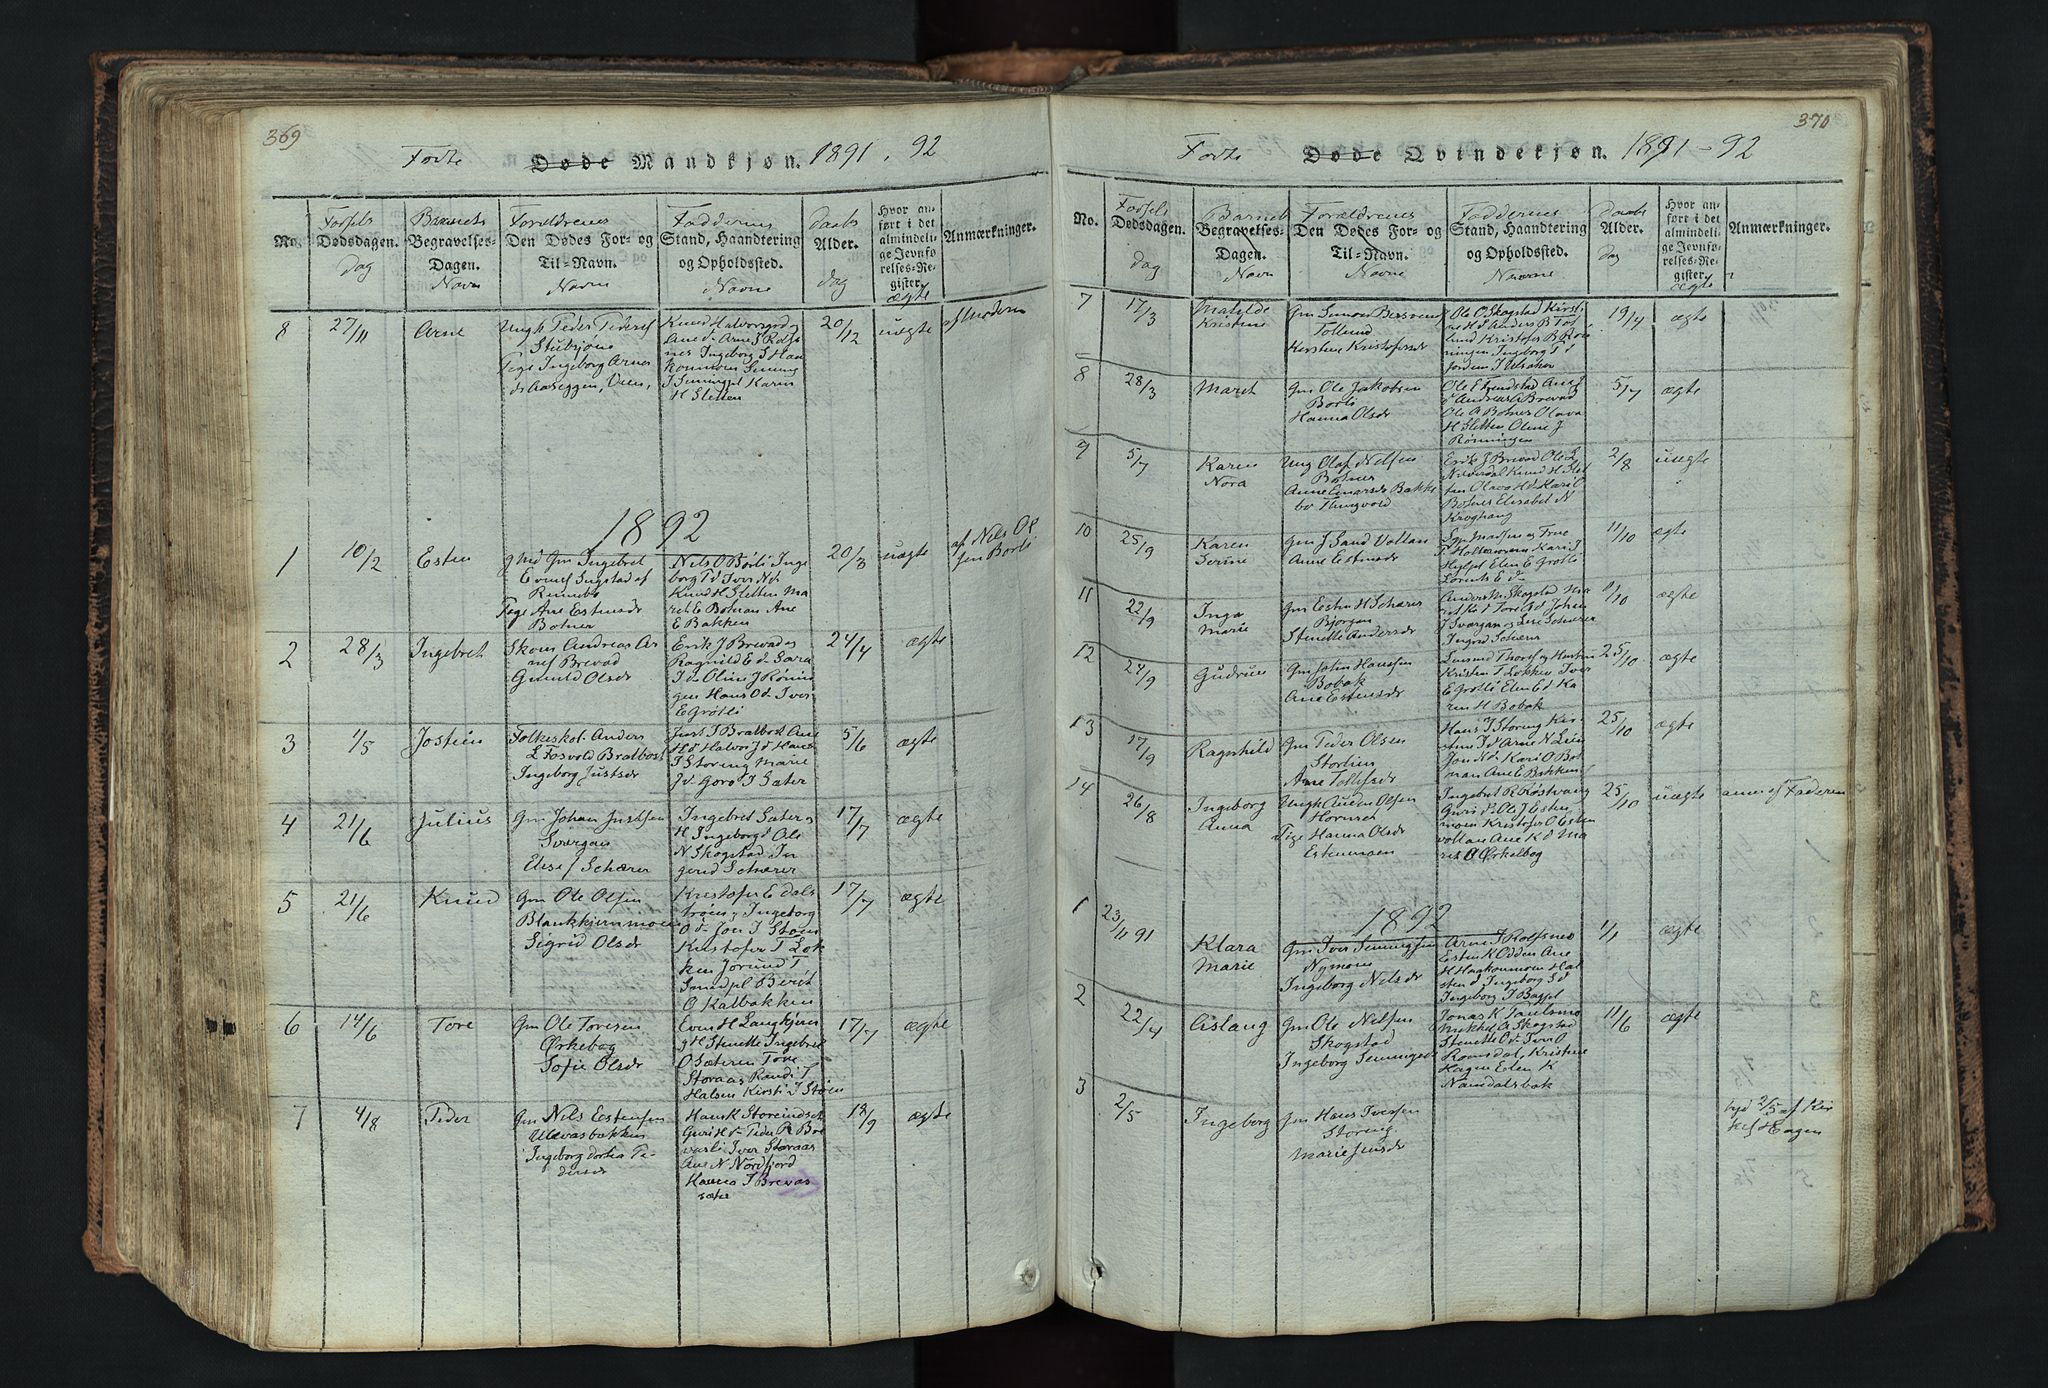 369
Fødte Døde Mandkjøn. 1891. 92
No.
Fødsels
Dødsdagen.
Dag
Barnets
Begravelses-
Dagen.
Navn
Forældrenes
Den Dødes For- og
Til-Navn.
Navne
Faddernes
Stand, Haandtering
og Opholdssted.
Navne
Daabs
Alder.
dag
Hvor an-
ført i det
almindeli-
ge Jevnfø-
relses-Re-
gister.
ægte
Anmærkninger.
8 27/11 Arne
Ungk Peder Peders
Stubsjøen
Pige Ingeborg Arnes
d. Aaseggen, Veen,
Knud Halvorsrød og
Ane d. Arne S Rolfs
nes Ingeborg S Haa
konmoen Siming
J Semmgpl Karen
H Sletten
20/12 uægte af Moderen
1892
1 10/2 Esten
Gm Ingebret
Evens Ingstad af
Rennebo
Pige Ane Estensdr
Botner
Nils O Børli Inge
borg T d Iver N d.
Knud H Sletten Ma
ret E Botnan Ane
E Bakken
20/3 uægte
af Nils Ol
sen Borli
2 28/3 Ingebret
Skom Andreas Ar
nes Brevad
Gunild Olsdr
Erik J Brevad og
Ragnild E d. Sara
J d Oline J Rønin
gen Hans O d Iver
E Grøtli
24/4 ægte
3 1/5 Jostein
Folkeskol. Anders
L Fosvold Bratbost
Ingeborg Justsdr
Just J Bratbok Ane
H d Halvor J d Hans
J Storeng Marie
J d. Goro J Sæter
5/6 ægte
4 21/6 Julius
Gm Johan Justsen
Svergan
Elise J Schærer
Ingebret Sæter og
H Ingeborg d Ole
N Skogstad In
gerid Schærer
17/7 ægte
5 21/6 Knud
Gm Ole Olsen
Blankkjernmoen
Sigrid Olsdr
Kristofer E Dals
trøen, Ingeborg
O d. Jon J Støen
Kristofer T Løk
ken Jørund T
Smedpl Berit
O Kalbakken
17/7 ægte
6 14/6 Tore
Gm Ole Toresen
Ørkebog
Sofie Olsdr
Even H Langkjøren
g H Stenette Ingebrit
O Sæteren Tore
Storaas Randi T
Halsen Kirsti J Støen
17/7 ægte
7 4/8 Peder
Gm Nils Estensen
Ulevasbakken
Ingeborg Dortea Pe-
dersdr
Hans K Storeindset
Guri H d. Peder R Bre
vasli Iver Storaas
Ane N Nordfjord
Hanna J Brevas
sætr
18/9 ægte
370
Fødte Døde Qvindekjøn. 1891-92
No.
Fødsels
Dødsdagen.
dag
Barnets
Begravelses-
Dagen.
Navn
Forældrenes
Den Dødes For- og
Til-Navn.
Navne
Faddernes
Stand, Haandtering
og Opholdssted.
Navne
Daabs
Alder.
dag
Hvor an-
ført i det
almindeli-
ge Jevnfø-
relses-Re-
gister.
ægte
Anmærkninger.
7 17/3 Matilde
Kristine
Gm Simon Bersvens
Tollund
Kirstine Kristofersdr
Ole O Skogstad Kirsti
ne H d Anders B Tol
lund Kristofer B Røn
ningen Ingeborg J d
Jorden J Ulsaker
19/4 ægte
8 28/3 Maret
Gm Ole Jakobsen
Borli
Hanna Olsdr
Ole E Trendstad Ane E
d Andreas A Brevad
Ole A Botner Olava
H Sletten Oline J
Rønningen
5/7 ægte
9 5/7 Karen
Nora
Ung Olaf Nilsen
Botner
Anne Einarsdr Bakke
bo Tingvold
Erik J Brevad Ole L
Nilsendal Knud H Slet
ten Olava H d Kari O
Botner Elisabet N
Kroghaug
2/8 uægte
10 25/9 Karen
Serine
Gm J Sand Vollan
Anne Estensdr
Lgn Madsen og Frue
P Holtermann Kari J
Hylpt Elen E Grøtli
Lorents E d
11/10 ægte
11 22/9 Inga
Marie
Gm Esten H Schærer
Bjørgan
Stenette Andersdr
Anders N Skogstad Ma
rit K d Tore G d Johan
J Svergan og Lise Schærer
Ingrid Schærer
/10 ægte
12 24/9 Gudrun
Gm John Hansen
Bobak
Ane Estensdr
Kristen T Løkken Iver
E Grøtli Elen E d Ka
ren H Bobak
25/10 ægte
13 17/9 Ragnhild
Gm Peder Olsen
Storlien
Ane Tollefsdr
Hans J Storeng Kir
stine J d Arne N Lien
Jon N d Kari O Bot
nan Ane E Bakken
25/10 ægte
14 26/8 Ingeborg
Anna
Ungk Auden Olsen
Hornset
Pige Hanna Olsdr
Estenmoen
Ingebret R Røstvang
Guri d. Ole J Esten
moen Kristofer O Esten
vollan Ane K d Ma
ret O Ørkelbog
25/10 uægte
anm af Faderen
1892
1 23/11 91 Klara
Marie
Gm Iver Semmingsen
Nymoen
Ingeborg Nilsdr
Arne J Rolfsmo
Esten K Odden Ane
H Haakonmoen Hal
sten d Ingeborg S d
Ingeborg J Bagpl
1/1 ægte
2 22/4 Aislaug
Gm Ole Nilsen
Skogstad
Ingeborg Semmingsdr
Jonas K Paulsmo
Mykkel A Skogstad
Stenette O d. Iver O
Romsdal, Kristine
Hagen Elen K
Namdalsbak
11/6 ægte
3 2/5 Ingeborg
Gm Hans Iversen
Storeng
Marie Jensdr
hjd 2/5 af Kir
kes Hagen